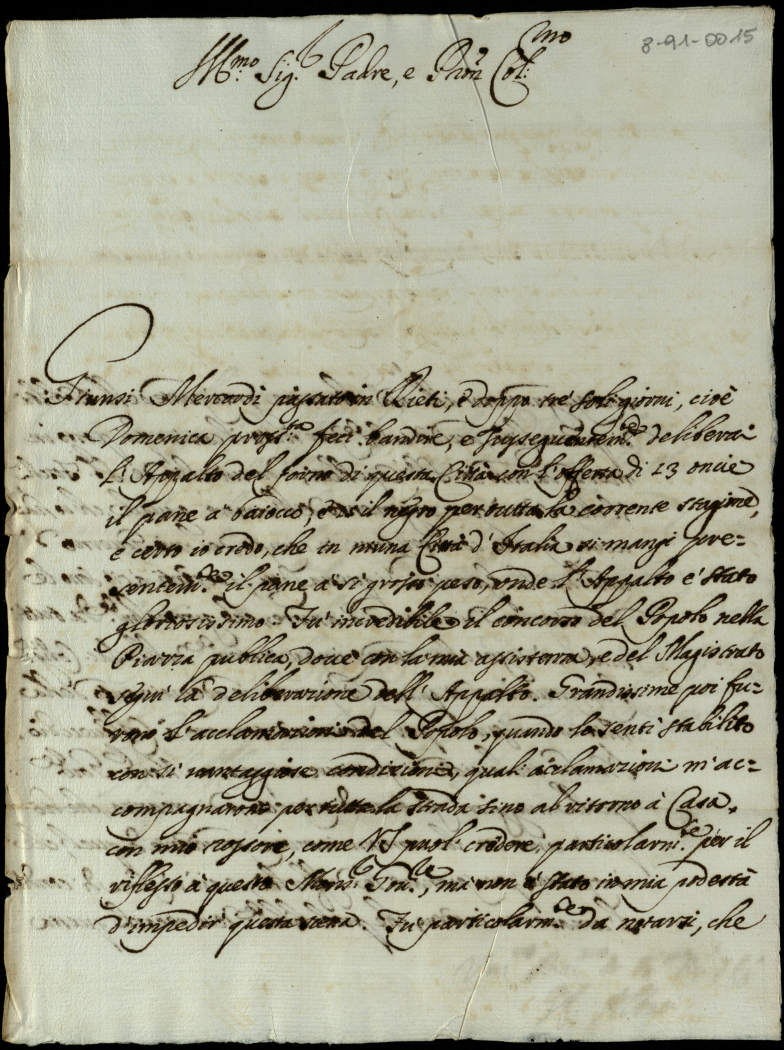 8-91-0015
Ill.mo Sig.r Padre, e Pron Col.mo
Giunsi Mercordì passato in Rieti, e doppo tre soli giorni, cioè
Domenica pross.a feci bandire, e susseguentem.te deliberai
l'Appalto del forno di questa Città con l'offerta di 23 oncie
il pane à baiocco, e il negro per tutta la corrente stagione,
e certo io credo, che in niuna Città d'Italia si mangi pre=
sentem.te il pane à si grosso peso, onde l'Appalto è stato
gloriosissimo. Fù incredibile il concorso del Popolo nella
Piazza publica, doue con la mia assistenza, e del Magistrato
seguì la deliberazione dell'Appalto. Grandissime poi fu=
rono l'acclamazioni del Popolo, quando lo sentì stabilito
con sì vantaggiose condizioni, quali acclamazioni m'ac=
compagnarono per tutta la strada sino al ritorno à Casa,
con mio rossore, come VS puol credere, particolarm.te per il
riflesso à questo Mons.r Gou.re, mà non è stato in mia podestà
d'impedir questa scena. Fù particolarm.te da notarsi, che